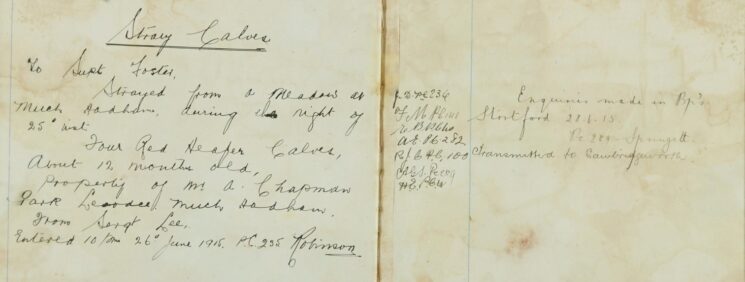 Stray Calves
To Supt Foster,
Strayed from a Meadow at
Much Hadham, during the night of
25th inst
Four Red Heafer Calves,
About 12 months old,
Property of Mr A. Chapman
Park Much Hadham.
From Sergt Lee,
Entered 10 pm 26th June 1915 P.C. 235 Robinson
PC 236
A E PC 282
P.C. 100
Enquiries made in Bp's
Stortford 27.6.15.
Pc Springett
Transmitted to Sawbridgeworth